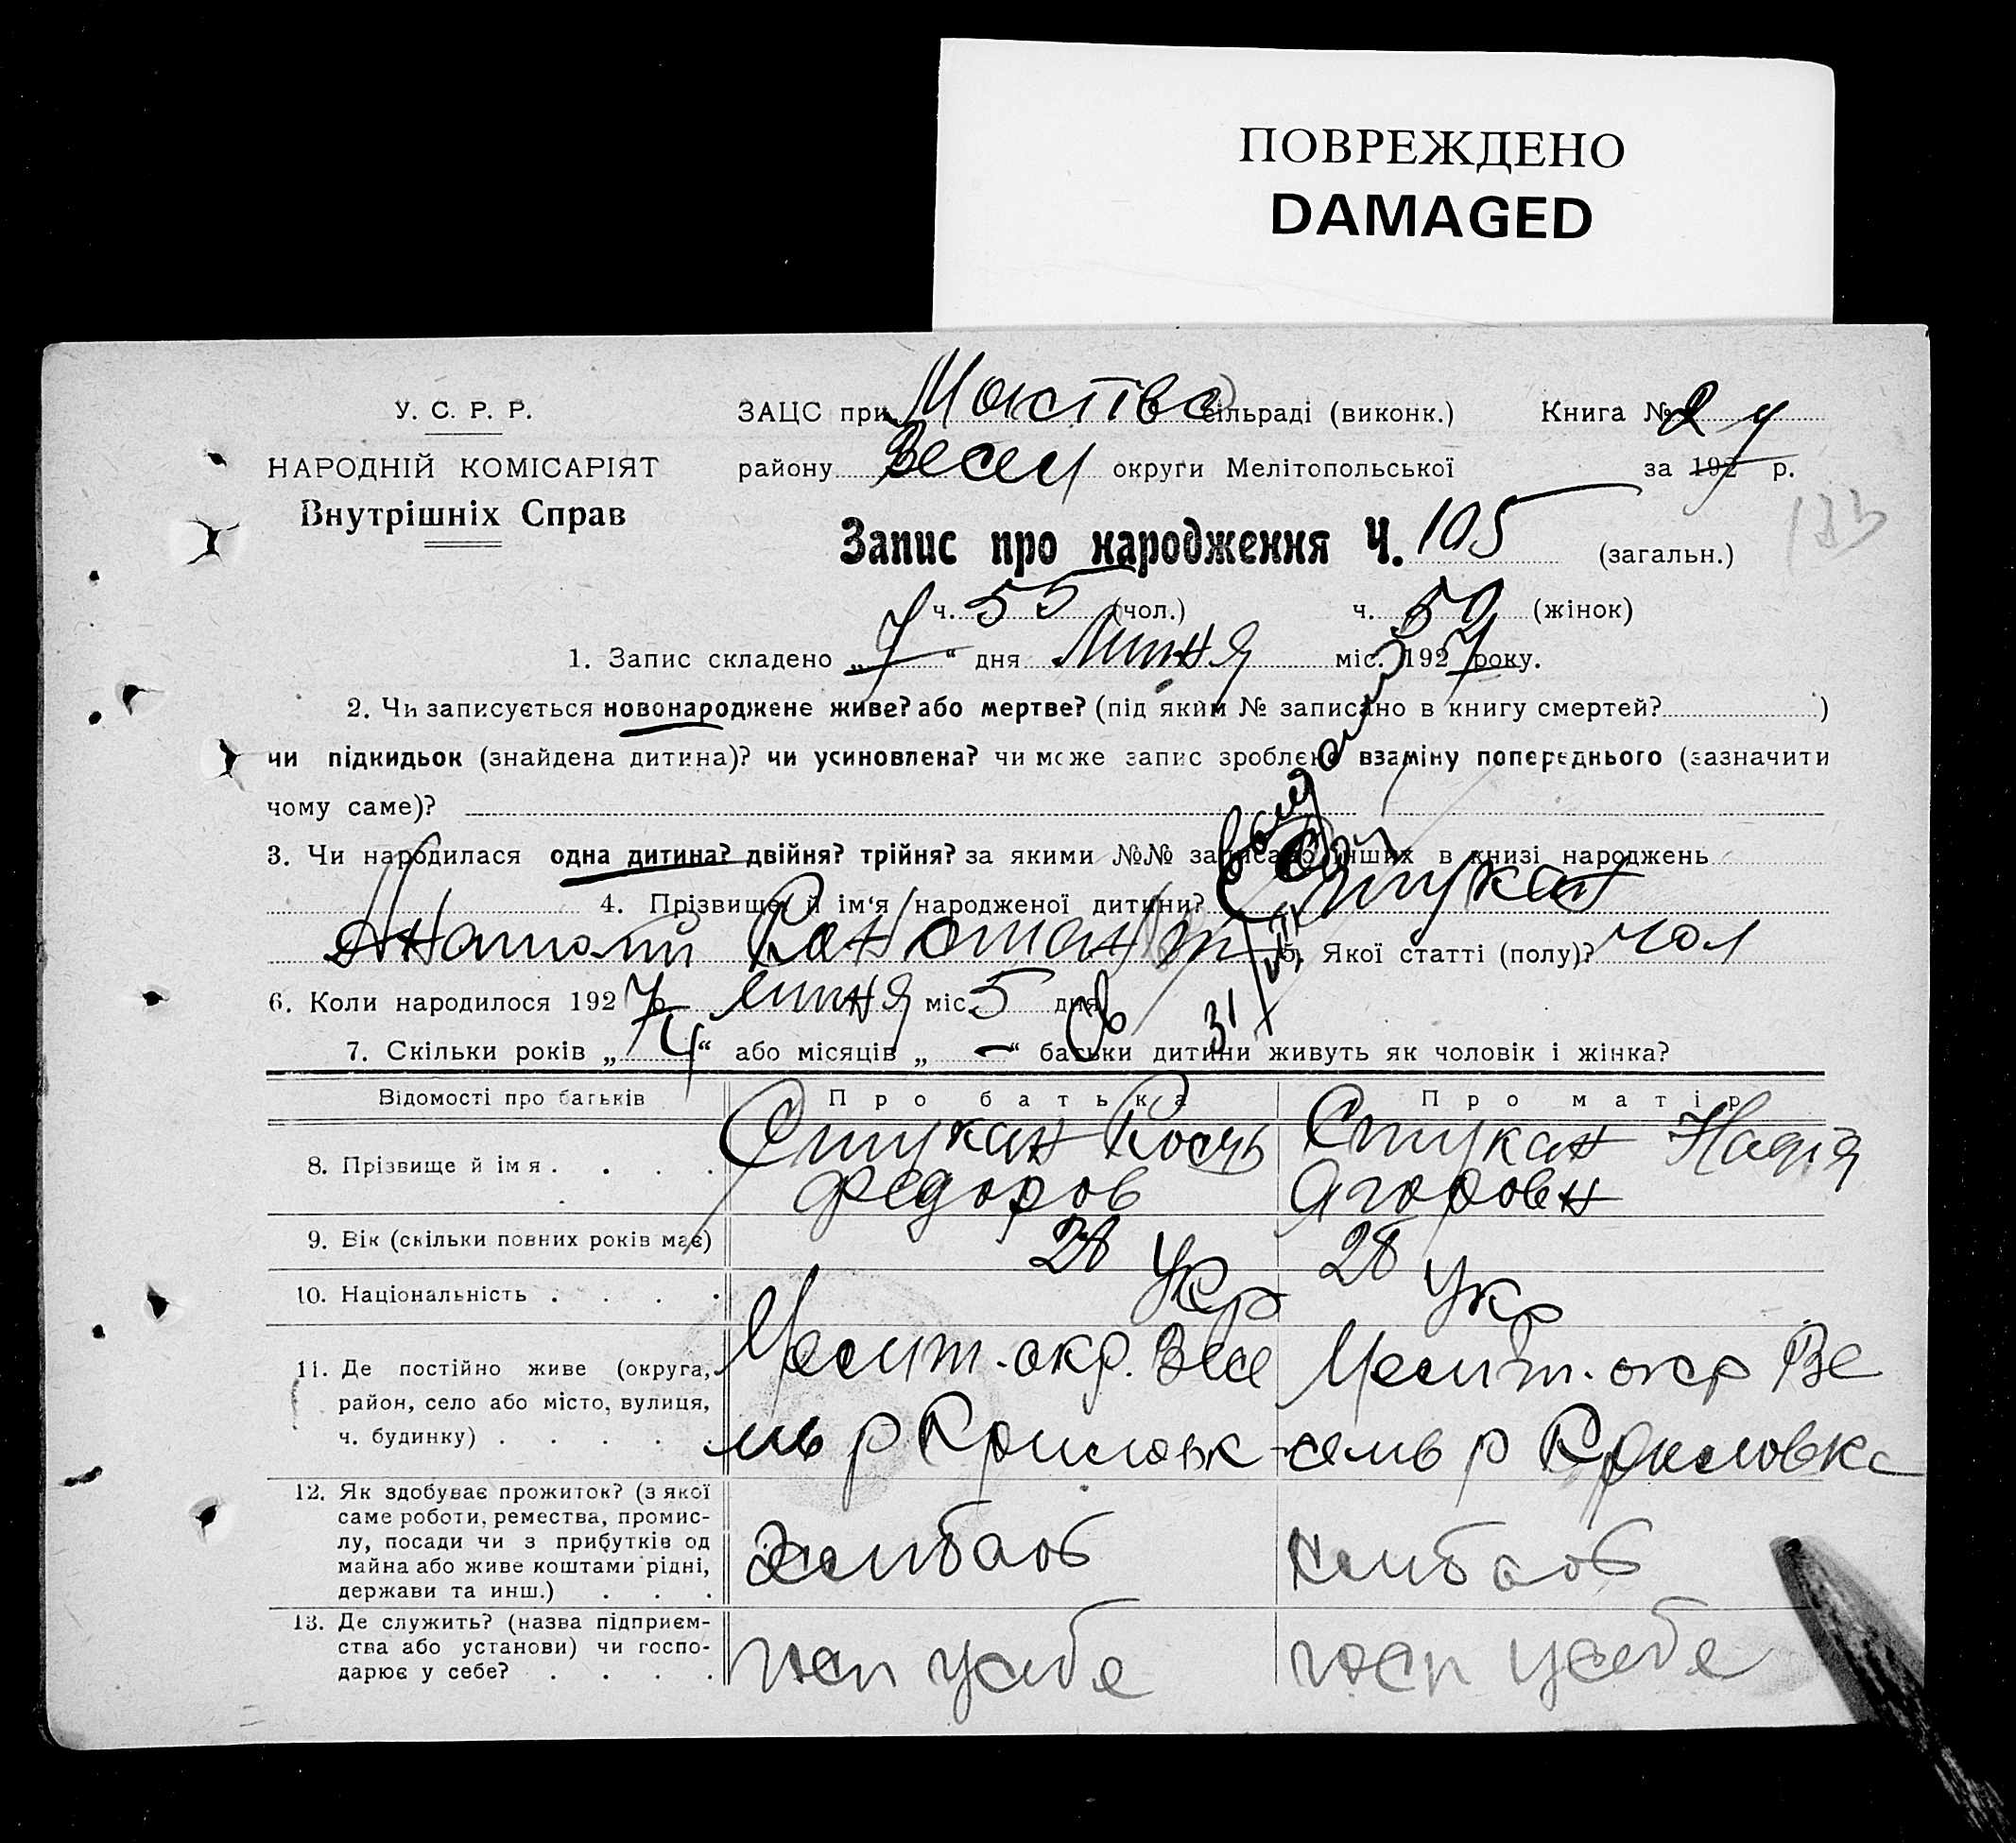 ПОВРЕЖДЕНО
DAMAGED
У. С. Р. Р.
ЗАЦС при сільраді (виконк.) Книга № 2
НАРОДНІЙ КОМІСАРІЯТ
району Весел округи Мелітопольської за 1927 р.
Внутрішніх Справ
Запис про народження Ч. 105 (загальн.)
ч. 55 (чол.) ч. 50 (жінок)
1. Запис складено „7“ дня липня міс. 1927 року.
2. Чи записується новонароджене живе? або мертве? (під яким № записано в книгу смертей? )
чи підкидьок (знайдена дитина)? чи усиновлена? чи може запис зроблено взаміну попереднього (зазначити
чому саме)?
3. Чи народилася одна дитина? двійня? трійня? за якими №№ записано інших в книзі народжень
4. Прізвище й ім‘я народженої дитини? Стукан
Анатолий 5. Якої статті (полу)? чол
6. Коли народилося 1927 р. липня міс. 5 дня
7. Скільки років „4“ або місяців „—“ батьки дитини живуть як чоловік і жінка?
Відомості про батьків Про батька Про матір
8. Прізвище й імя . . . . Стукан Стукан Надія
Федоров Ягоровн
9. Вік (скільки повних років має) 28 28
10. Національність . . . . Укр Укр
11. Де постійно живе (округа, Мелит. окр. Весе Мелит. окр Ве
район, село або місто, вулиця,
ч. будинку) . . . . . ль р Криловк сель р Криловка
12. Як здобуває прожиток? (з якої
саме роботи, ремества, промис-
лу, посади чи з прибутків од
майна або живе коштами рідні,
держави та инш.) . . . хлибаоб хлибаоб
13. Де служить? (назва підприєм-
ства або установи) чи госпо-
дарює у себе? . . . . госп у себе госп у себе